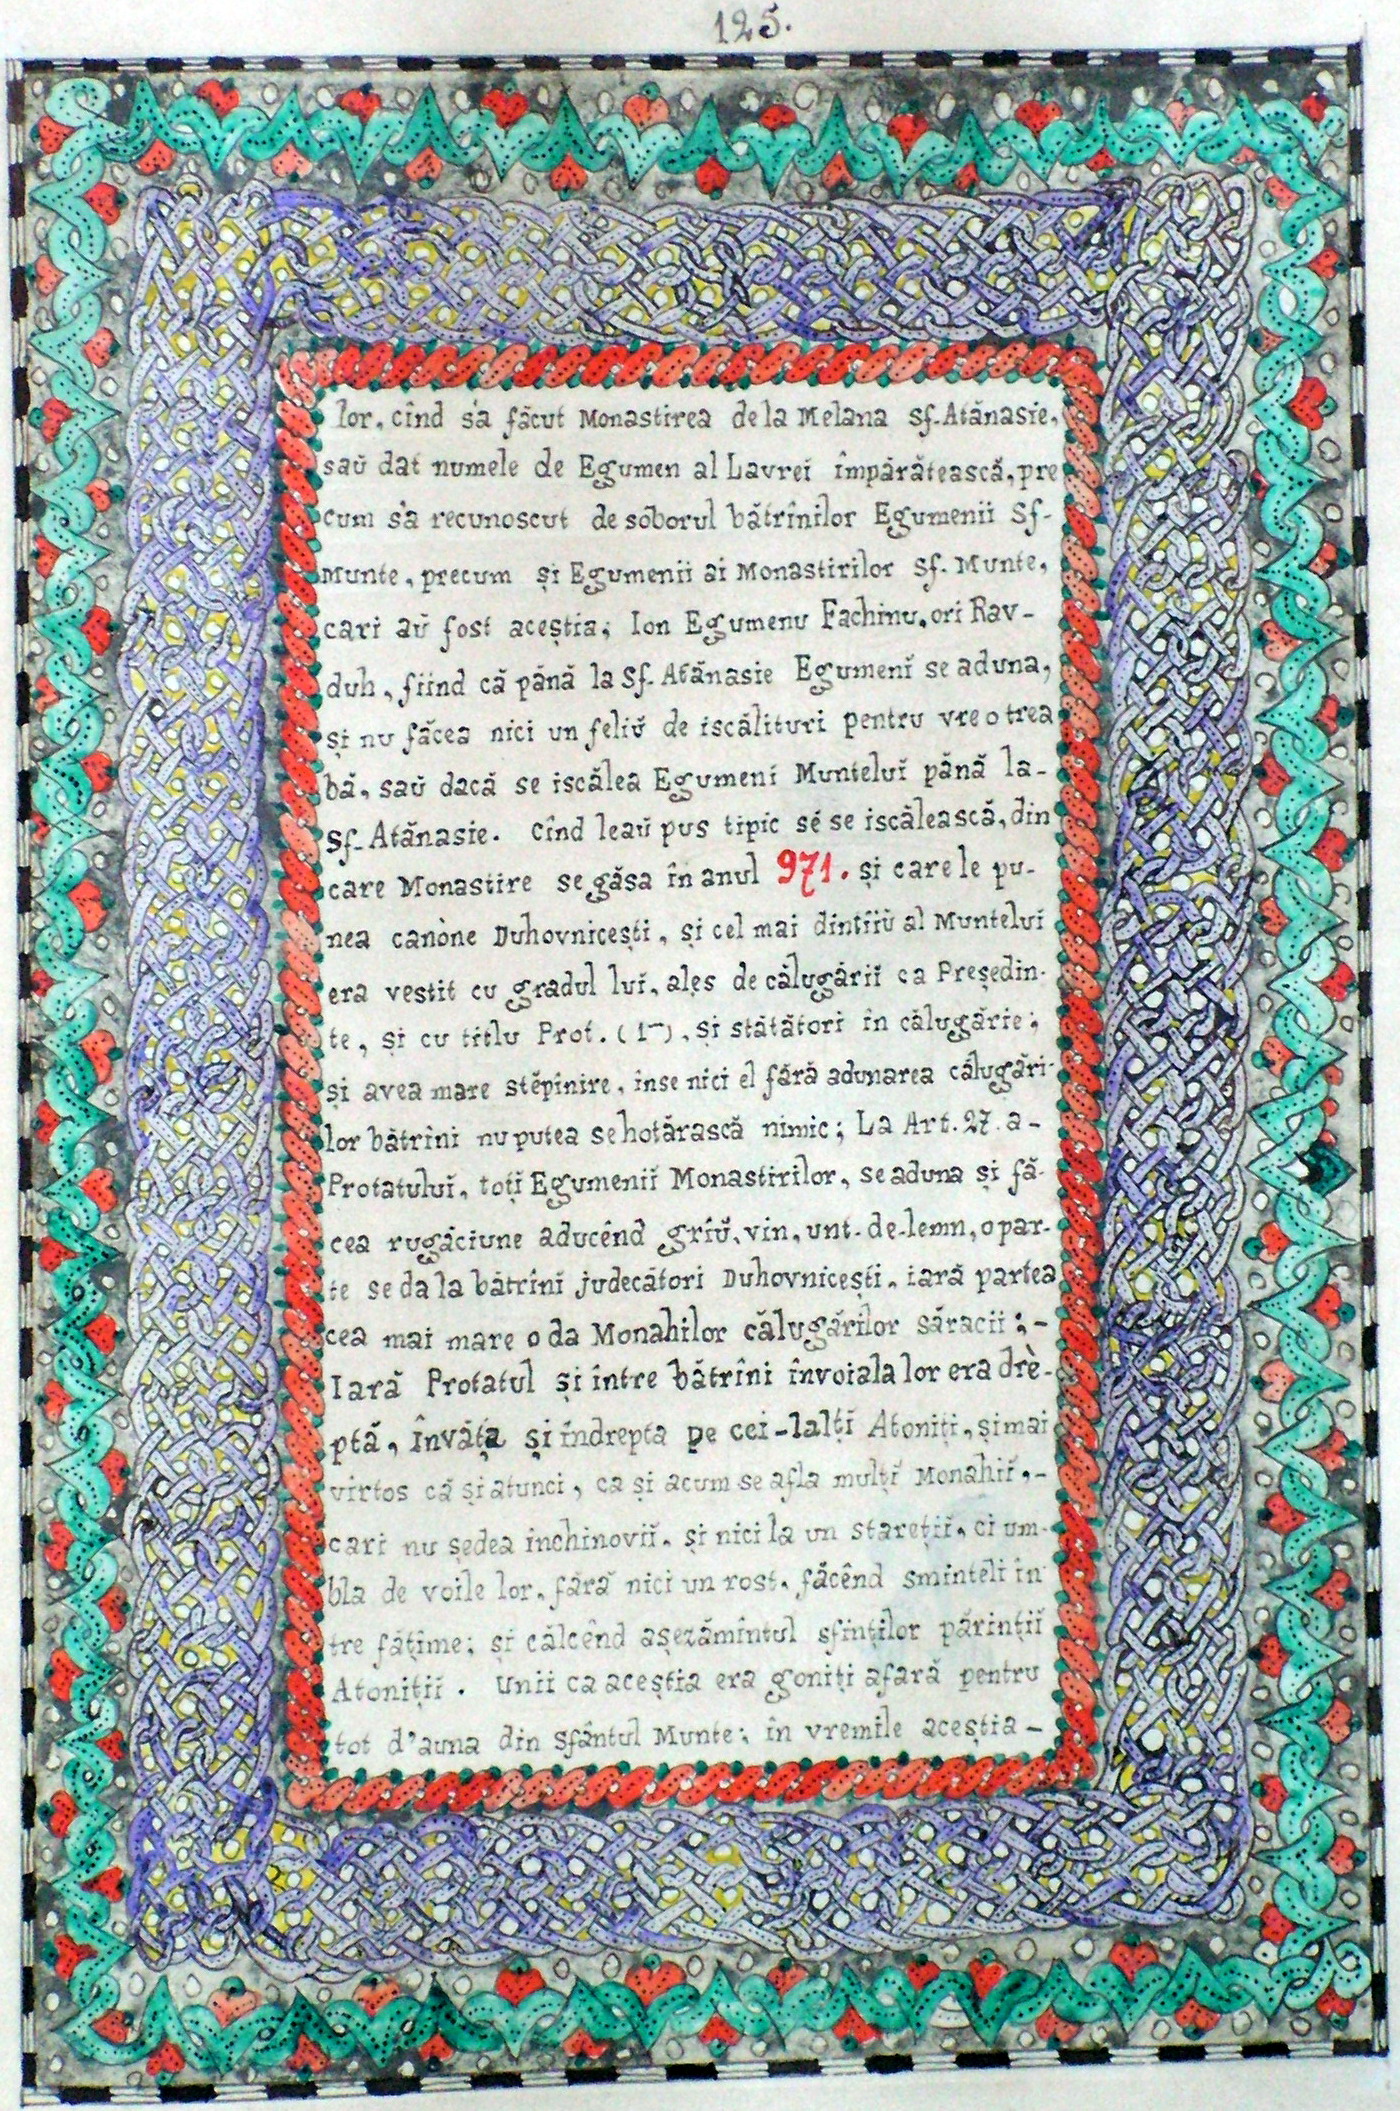 125.
lor, cînd s'a făcut Monastirea de la Melana Sf. Atănasie,
saŭ dat numele de Egumen al Lavreĭ împărătească, pre
cum s'a recunoscut de soborul bătrînilor Egumenii Sf-
Munte, precum și Egumenii ai Monastirilor Sf. Munte,
cari aŭ fost aceștia; Ion Egumenu Fachinu, ori Rav-
duh, fiind că până la Sf. Atănasie Egumenĭ se aduna,
și nu făcea nici un feliŭ de iscălituri pentru vre o trea
bă, saŭ dacă se iscălea Egumenĭ Munteluĭ până la-
Sf. Atănasie. Cînd leaŭ pus tipic sé se iscălească, din
care Monastire se găsa în anul 971. și care le pu-
nea canòne Duhovnicești, și cel mai dintîiŭ al Munteluĭ
era vestit cu gradul luĭ, ales de călugăriĭ ca Președin-
te, și cu titlu Prot. (1), și stătători în călugărie;
și avea mare stĕpînire, înse nici el fără adunarea călugări-
lor bătrîni nu putea se hotărască nimic; La Art. 27. a-
Protatuluĭ, toțĭ Egumeniĭ Monastirilor, se aduna și fă-
cea rugăciune aducênd grîŭ, vin, unt-de-lemn, o par-
te se da la bătrînĭ judecători Duhovnicești, iară partea
cea mai mare o da Monahilor călugărilor săracii;-
Iară Protatul și între bătrîni învoiala lor era drè-
ptă, învăța și îndrepta pe cei-lalțĭ Atoniți, și mai
virtos că și atunci, ca și acum se afla mulțĭ Monahiĭ,-
cari nu ședea în chinoviĭ, și nici la un starețiĭ, ci um-
bla de voile lor, fără nici un rost, făcênd sminteli în
tre fățime; și călcênd așezămîntul sfinților părințiĭ
Atonițiĭ. Unii ca aceștia era goniți afară pentru
tot d'auna din Sfântul Munte; în vremile aceștia-